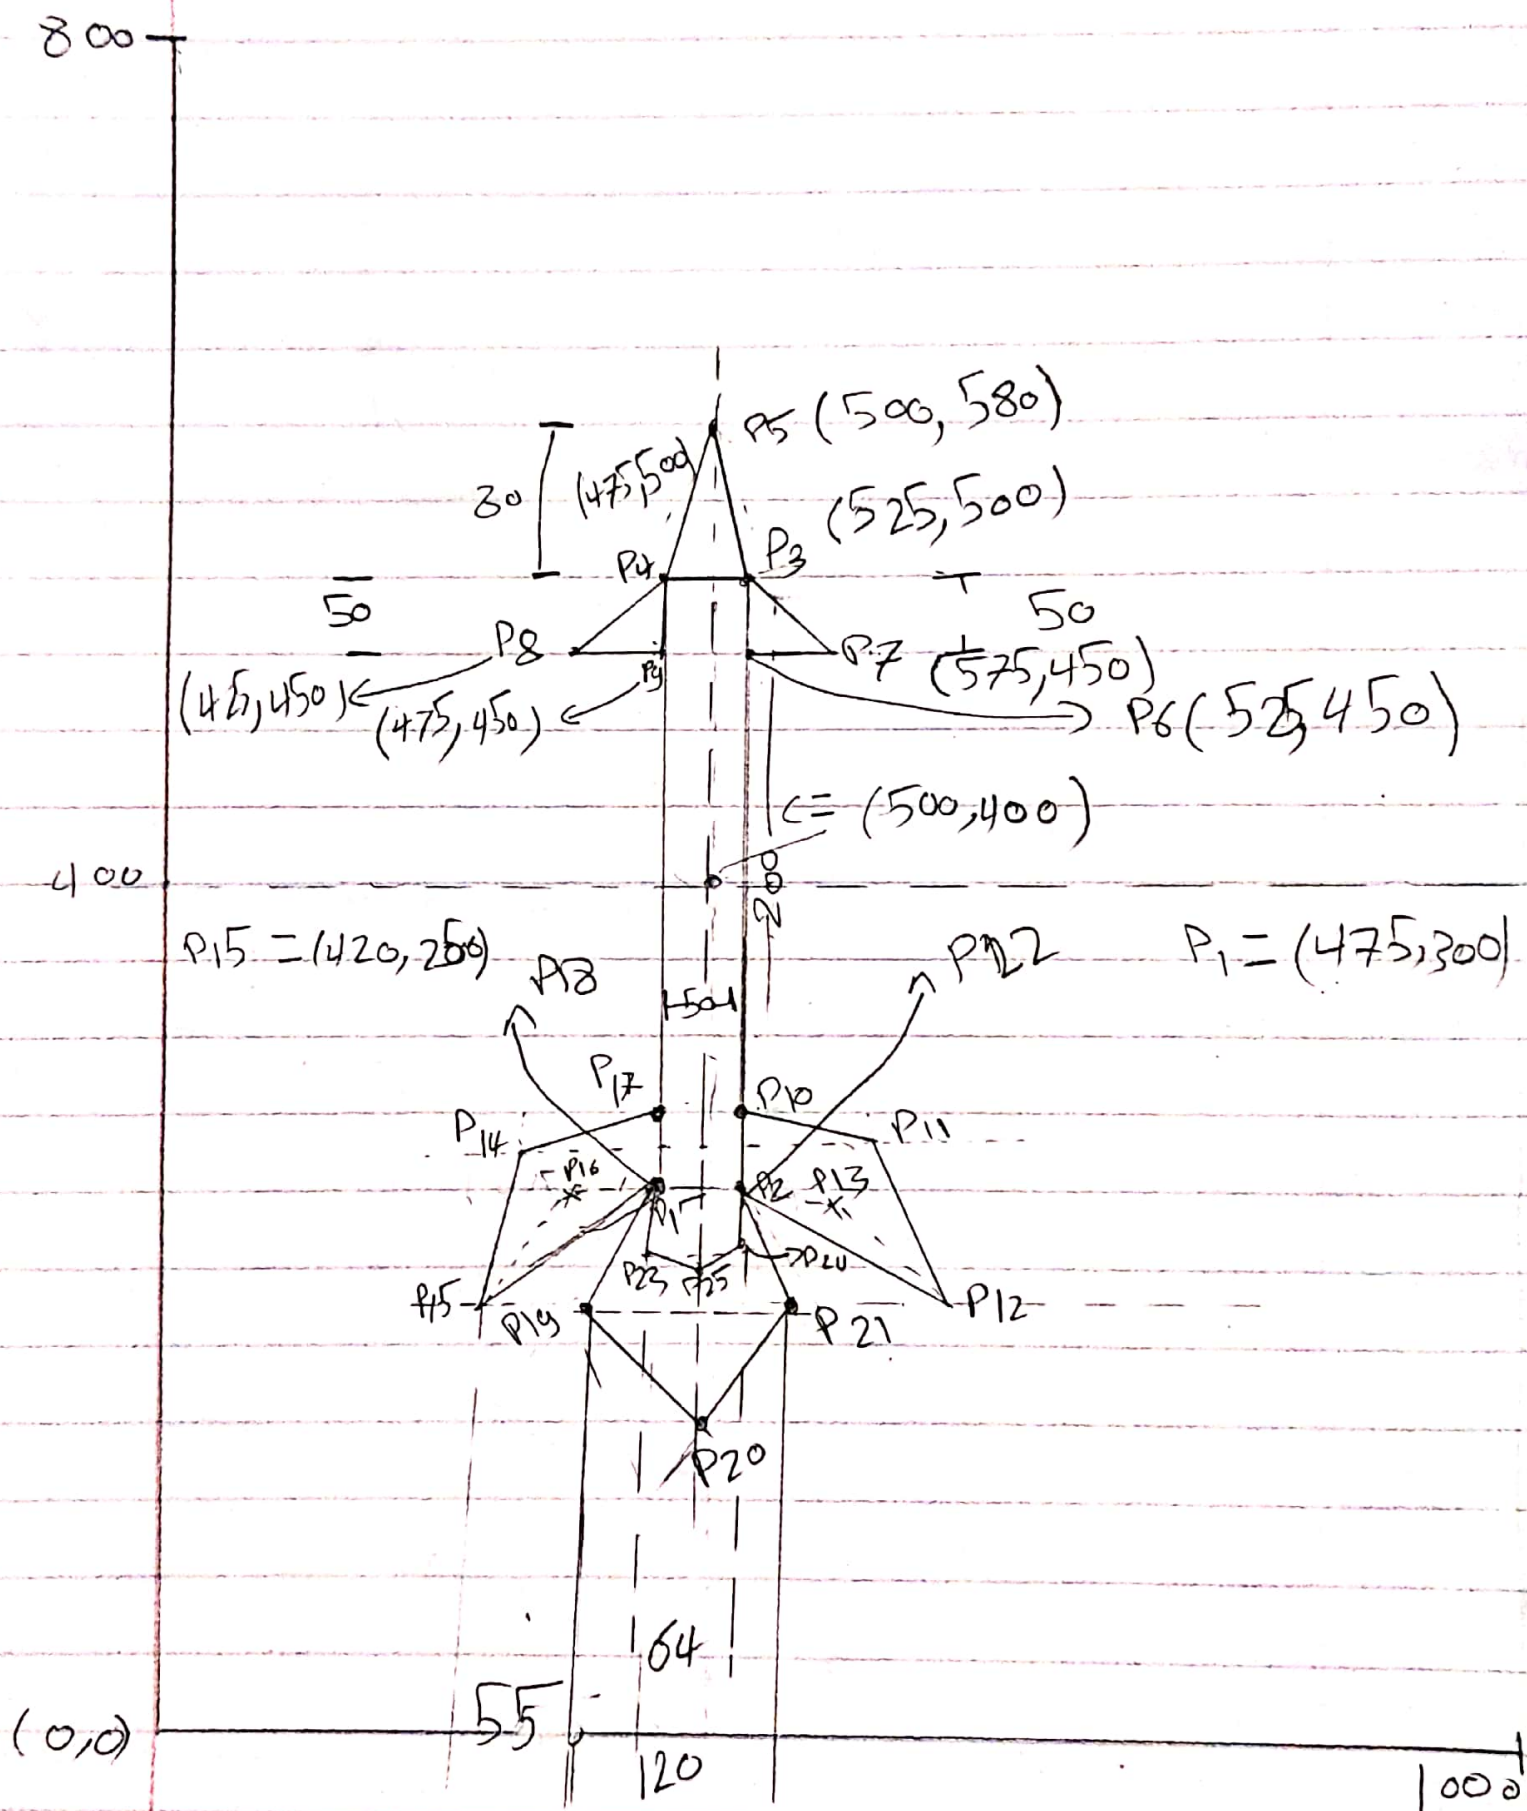 800
P5 (500, 580)
(475,500)
80
(525,500)
P4
P3
50
50
P8
P9
P7 (575,450)
(425,450)
(475,450)
P6(525,450)
C= (500,400)
400
200
P15 = (420,250)
P18
P22
P1 = (475,300)
50
P17
P10
P14
P11
P16
P1
P2
P13
P23
P25
P24
P15
P19
P21
P12
P20
64
55
(0,0)
120
1000